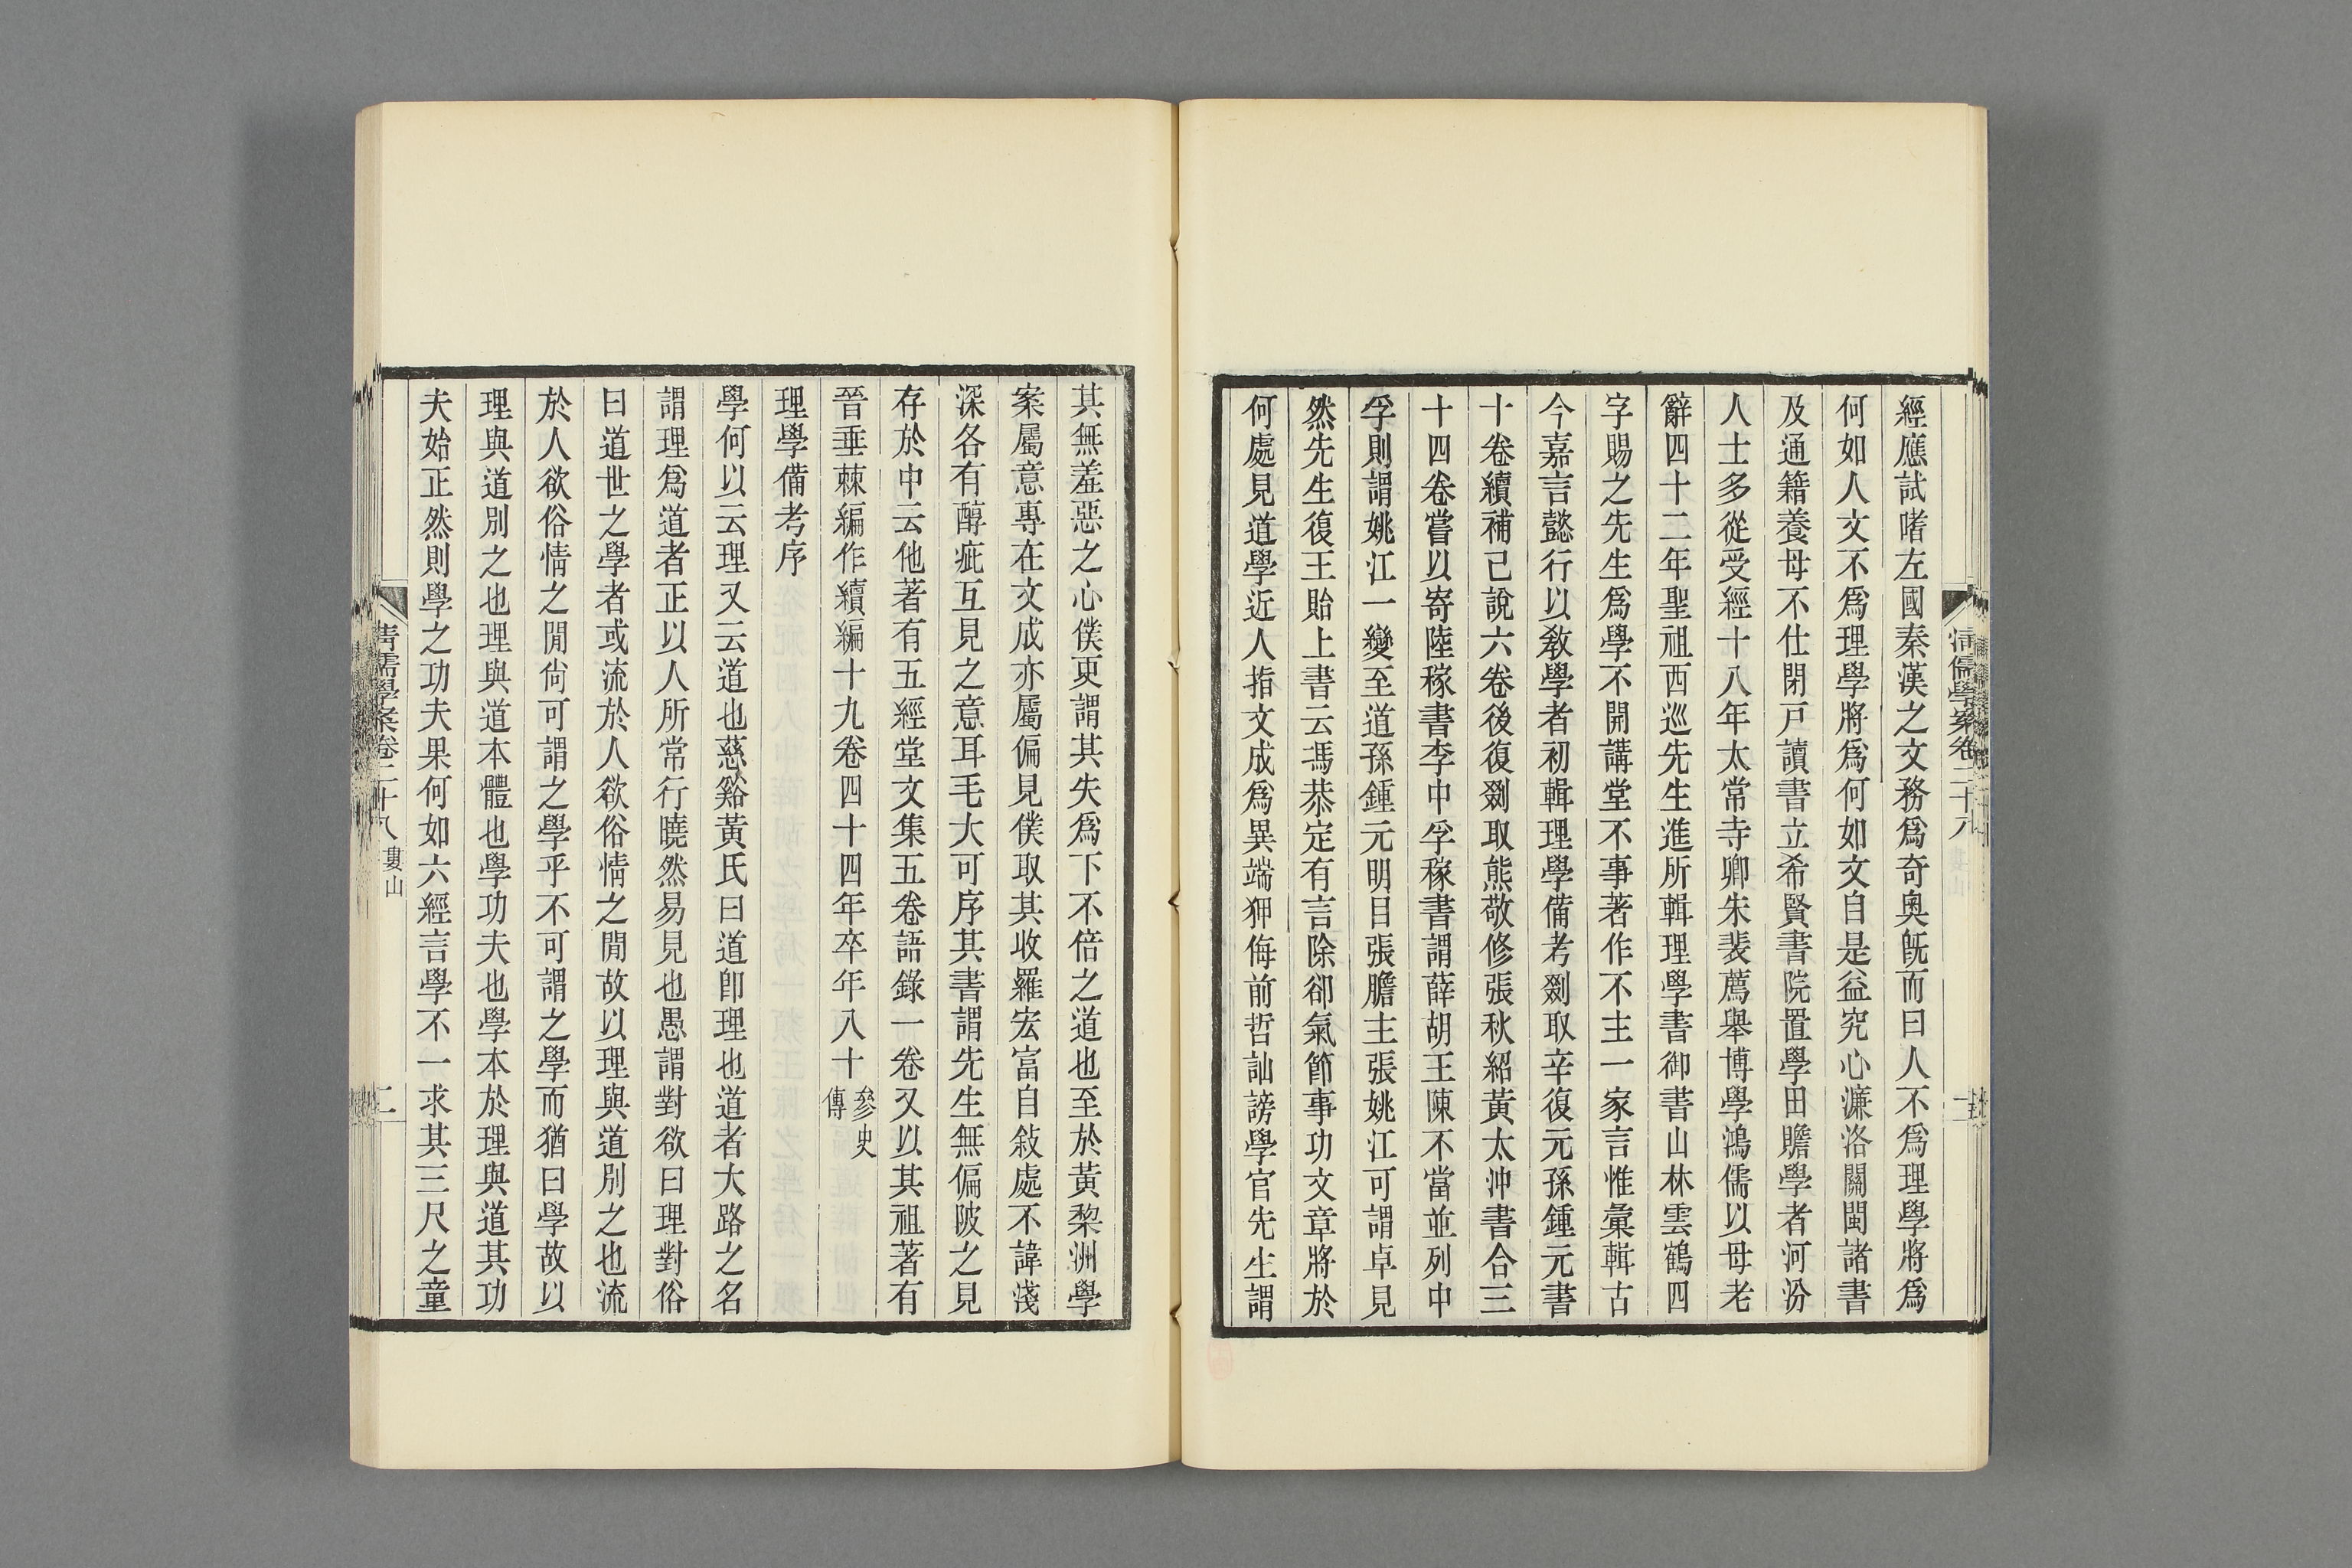 經應試嗜左國秦漢之文務爲奇奧旣而曰人不爲理學將爲
何如人文不爲理學將爲何如文自是益究心濂洛關閩諸書
及通籍養母不仕閉戸讀書立希賢書院置學田贍學者河汾
人士多從受經十八年太常寺卿朱裴薦舉博學鴻儒以母老
辭四十二年聖祖西巡先生進所輯理學書御書山林雲鶴四
字賜之先生爲學不開講堂不事著作不主一家言惟彙輯古
今嘉言懿行以敎學者初輯理學備考剟取辛復元孫鍾元書
十卷續補己說六卷後復剟取熊敬修張秋紹黃太沖書合三
十四卷嘗以寄陸稼書李中孚稼書謂薛胡王陳不當並列中
孚則謂姚江一變至道孫鍾元明目張膽主張姚江可謂卓見
然先生復王貽上書云馮恭定有言除卻氣節事功文章將於
何處見道學近人指文成爲異端狎侮前哲訕謗學官先生謂
其無羞惡之心僕更謂其失爲下不倍之道也至於黃棃洲學
案屬意專在文成亦屬偏見僕取其收羅宏富自敍處不諱淺
深各有醇疵互見之意耳毛大可序其書謂先生無偏陂之見
存於中云他著有五經堂文集五卷語錄一卷又以其祖著有
晉垂棘編作續編十九卷四十四年卒年八十參史傳
理學備考序
學何以云理又云道也慈谿黃氏曰道卽理也道者大路之名
謂理爲道者正以人所常行曉然易見也愚謂對欲曰理對俗
曰道世之學者或流於人欲俗情之閒故以理與道別之也流
於人欲俗情之閒尙可謂之學乎不可謂之學而猶曰學故以
理與道別之也理與道本體也學功夫也學本於理與道其功
夫始正然則學之功夫果何如六經言學不一求其三尺之童
清儒學案卷二十八 婁山 二